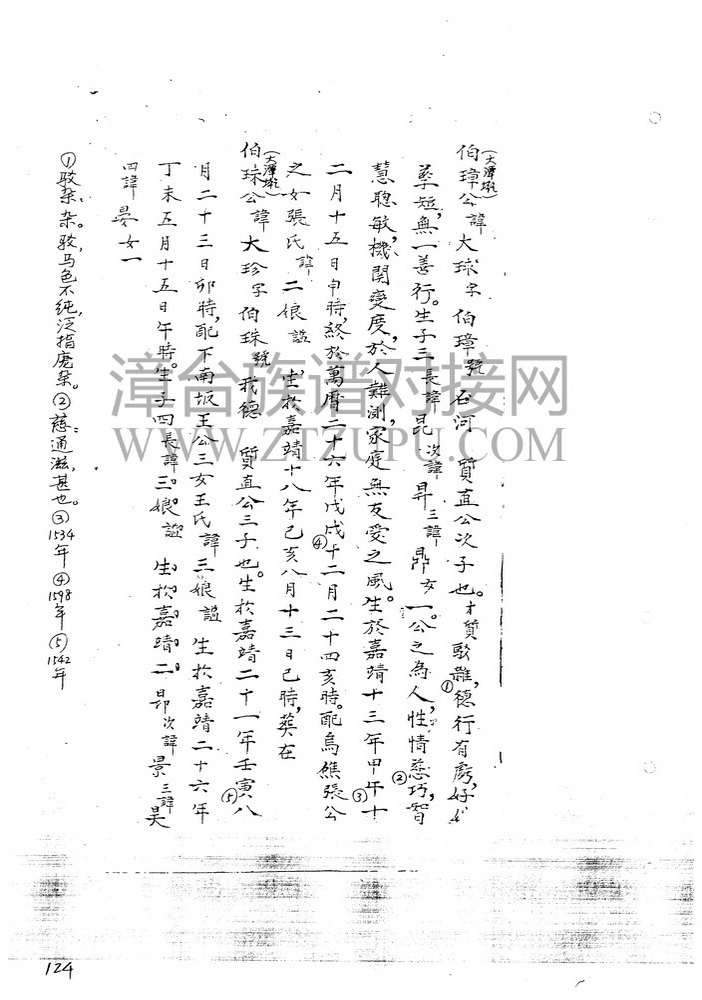 (大潭坑)
伯璋公諱大球字伯璋號石河 質直公次子也。才質駁雜,①德行有虧,好
举短,無一善行。生子三長諱昆次諱昇三諱鼎女一。公之為人,性情慈巧,②智
慧聰敏,機関變度,於人難測,家庭無友愛之風。生於嘉靖十三年甲午③十
二月十五日申時,終於萬曆二十六年戊戌④十二月二十四亥時。配烏樵張公
之女張氏諱二娘諡 生於嘉靖十八年己亥八月十三日巳時,葬在
(大潭坑)
伯珠公諱大珍字伯珠號我德 質直公三子也。生於嘉靖二十一年壬寅⑤八
月二十三日卯時,配下南坂王公三女王氏諱三娘諡 生於嘉靖二十六年
丁未五月十五日午時。生子四長諱三娘諡生於嘉靖二昂次諱景三諱昊
四諱晏女一
①駁杂:杂。驳,马色不纯,泛指庞杂。②慈:通滋,甚也。③1534年④1598年⑤1542年
漳台族谱对接网
WWW.ZTZUPU.COM
124